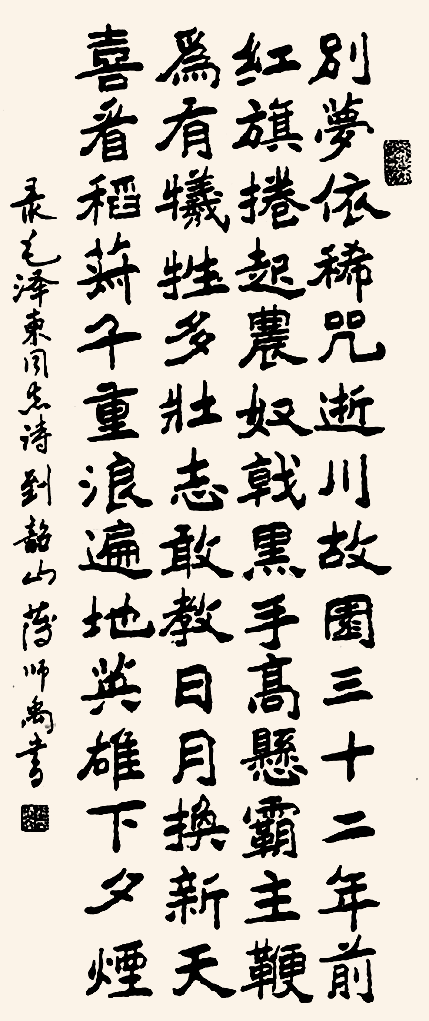 別夢依稀咒逝川故園三十二年前
紅旗捲起農奴戟黑手髙懸霸主鞭
爲有犧牲多壯志敢教日月換新天
喜看稻菽千重浪遍地英雄下夕煙
录毛泽東同志诗到韶山 师禹書